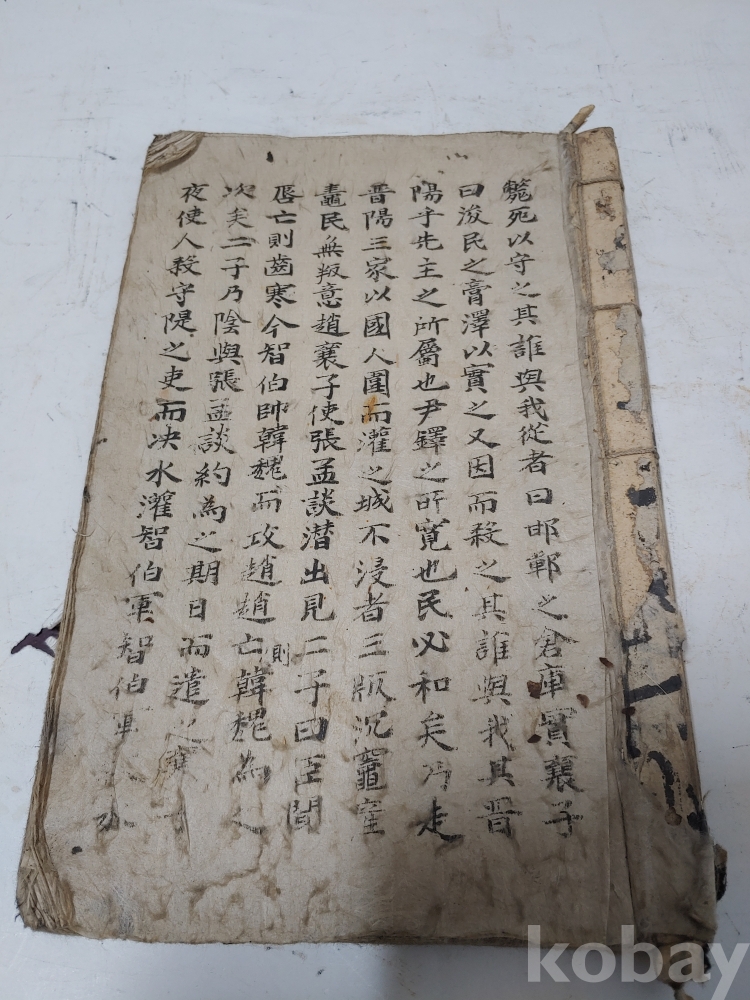 斃死以守之其誰與我從者曰邯鄲之倉庫實襄子
曰浚民之膏澤以實之又因而殺之其誰與我其晋
陽乎先主之所屬也尹鐸之所寬也民必和矣乃走
晋陽三家以國人圍而灌之城不浸者三版沉竈産
鼃民無叛意趙襄子使張孟談潜出見二子曰臣聞
唇亡則齒寒今智伯帥韓魏而攻趙趙亡則韓魏為之
次矣二子乃陰與張孟談約為之期日而遣之襄子
夜使人殺守隄之吏而决水灌智伯軍智伯軍水
kobay